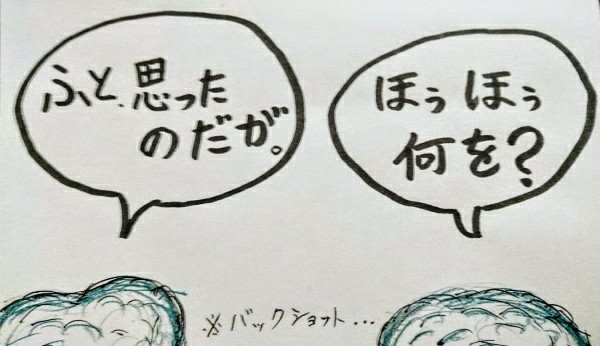 ふと、思った
のだが。
ほぅほぅ
何を?
※バックショット...